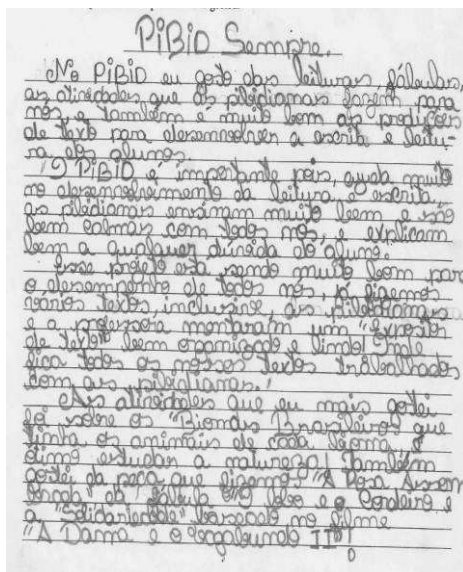 PiBiD Sempre.
No PiBiD eu gosto das leituras, fábulas,
as atividades que as pibidianas fazem para
nós e também é muito bom as produções
de texto para desenvolver a escrita e leitu-
ra dos alunos.
O PiBiD é importante pois, ajuda muito
no desenvolvimento da leitura e escrita,
as pibidianas ensinam muito bem e são
bem calmas com todos nós, e explicam
bem a qualquer dúvida do aluno.
Esse projeto está sendo muito bom para
o desempenho de todos nós, já fizemos
vários textos, inclusive, as pibidianas
e a professora montaram um "Expositor
de texto" bem organizado e lindo! Onde
fica todos os nossos textos trabalhados
com as pibidianas.
As atividades que eu mais gostei
foi sobre os "Biomas Brasileiros" que
tinha os animais de cada bioma, é
ótimo estudar a natureza! Também
gostei da peça que fizemos "A Rosa
da fábula "O lobo e o Cordeiro e
a "Solidariedade" baseado no filme
"A Dama e o Vagabundo II"!